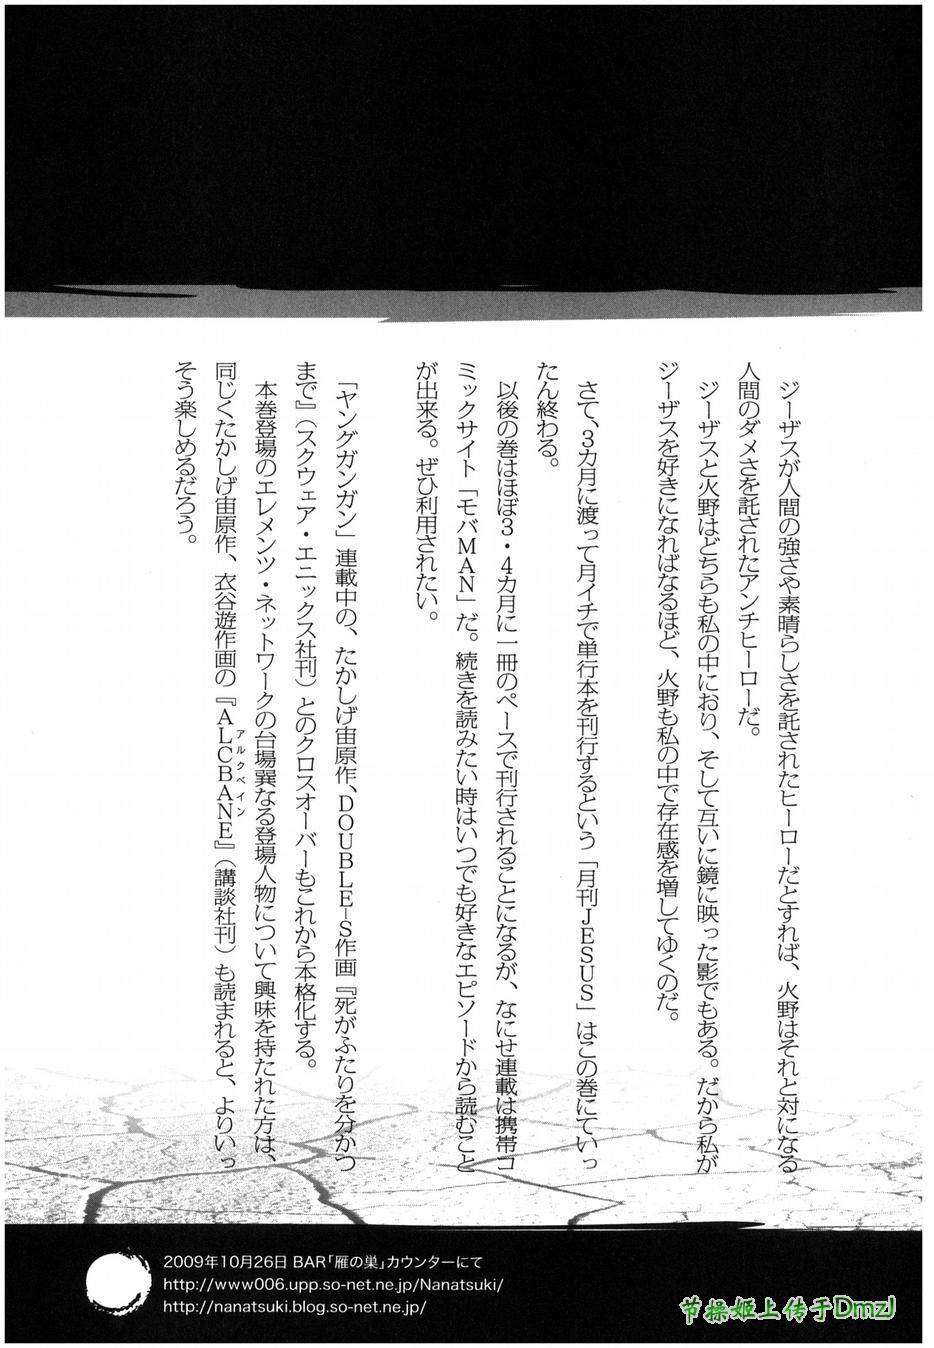 ジーザスが人間の強さや素晴らしさを託されたヒーローだとすれば、火野はそれと対になる
人間のダメさを託されたアンチヒーローだ。
ジーザスと火野はどちらも私の中におり、そして互いに鏡に映った影でもある。だから私が
ジーザスを好きになればなるほど、火野も私の中で存在感を増してゆくのだ。
さて、3カ月に渡って月イチで単行本を刊行するという「月刊JESUS」はこの巻にていっ
たん終わる。
以後の巻はほぼ3・4カ月に一冊のペースで刊行されることになるが、なにせ連載は携帯コ
ミックサイト「モバMAN」だ。続きを読みたい時はいつでも好きなエピソードから読むこと
が出来る。ぜひ利用されたい。
「ヤングガンガン」連載中の、たかしげ宙原作、DOUBLE-S作画『死がふたりを分かつ
まで』(スクウェア・エニックス社刊)とのクロスオーバーもこれから本格化する。
本巻登場のエレメンツ・ネットワークの台場巽なる登場人物について興味を持たれた方は、
同じくたかしげ宙原作、衣谷遊作画の『ALCBANE』(講談社刊)も読まれると、よりいっ
アルクベイン
そう楽しめるだろう。
2009年10月26日 BAR「雁の巣」カウンターにて
http://www006.upp.so-net.ne.jp/Nanatsuki/
http://nanatsuki.blog.so-net.ne.jp/
节操姬上传于DmzJ